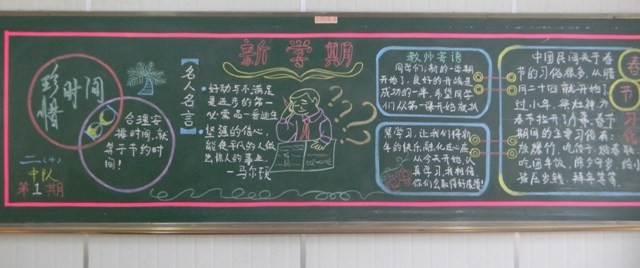 新学期
珍惜时间
合理安
排时间，就
等于节约时
间！
二（4）
中队
第1期
名人名言
好动与不满足
是进步的第一
必需品——爱迪生
坚强的信心，
能使平凡的人做
出惊人的事业
—马尔顿
教师寄语
同学们，新的一学期
开始了，良好的开端是
成功的一半，希望同学
们从第一课开始
学习，让我们将新
年的快乐融化在心底
从今天开始，认
真学习，我相信
你们会取得好成绩！
春节习俗
中国民间关于春
节的习俗很多，从腊
月二十四就开始了，
过小年，
春节拉开了序幕，春节
期间的主要习俗有：
放鞭炮，吃饺子，
吃团年饭，除夕守岁，给
压岁钱，拜年等等。